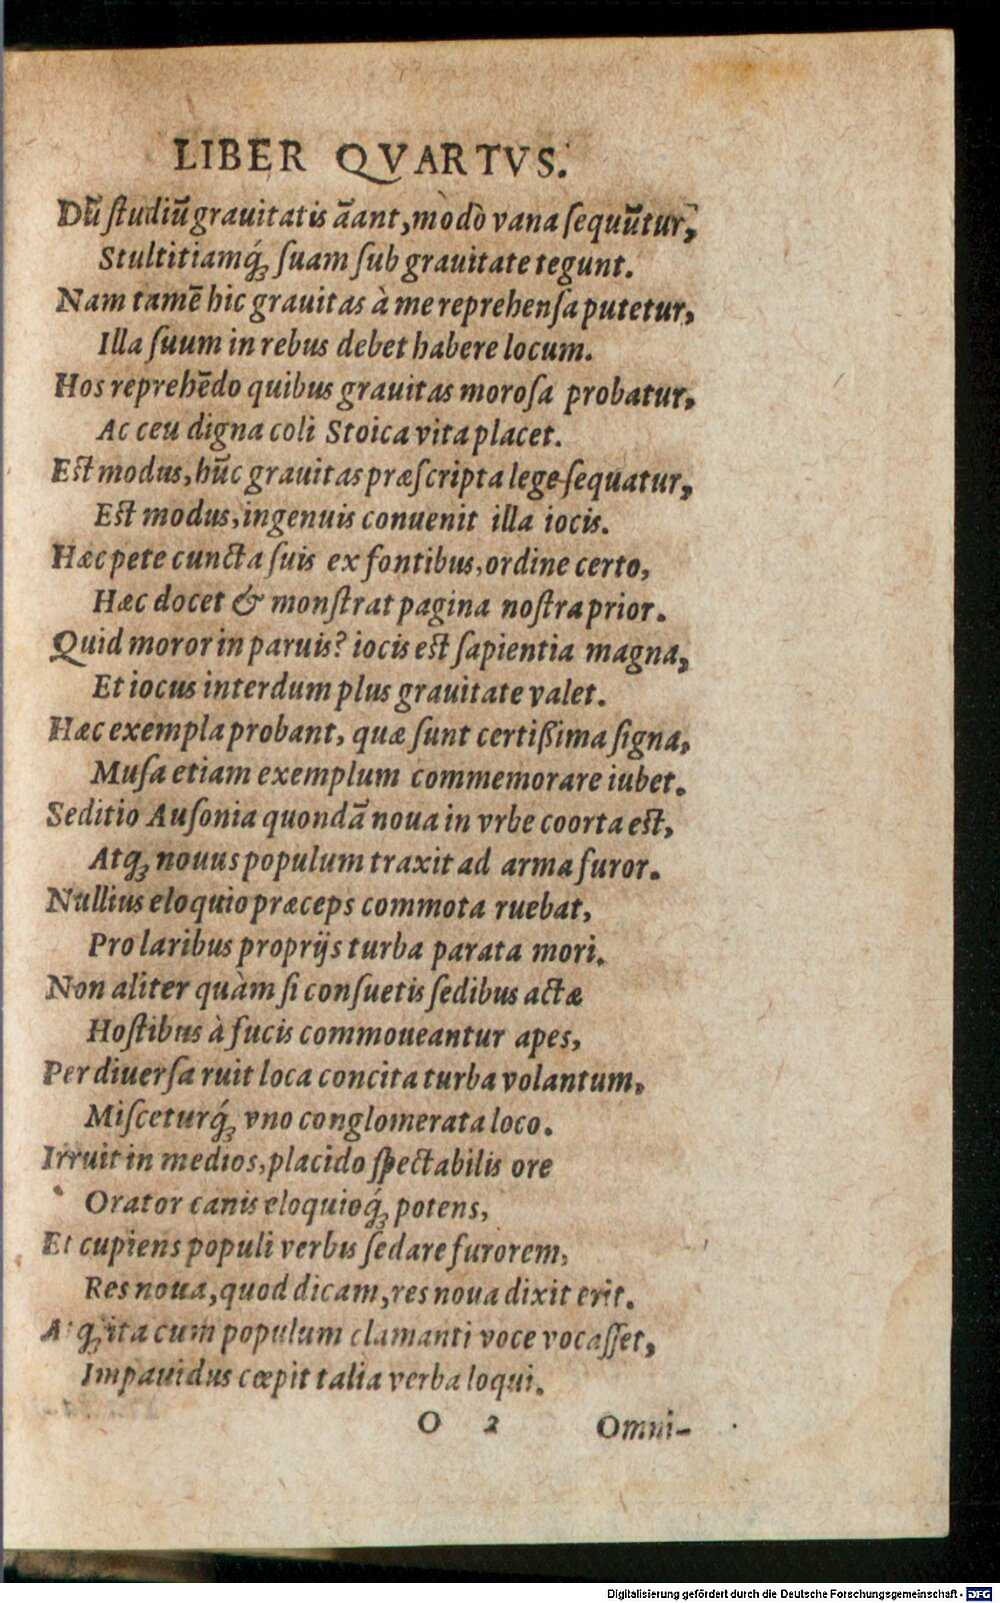 LIBER QVARTVS.
Dū ſtudiū grauitatis āant, modò vana ſequūtur,
Stultitiamq́ꝫ ſuam ſub grauitate tegunt.
Nam tamē hic grauitas à me reprehenſa putetur,
Illa ſuum in rebus debet habere locum.
Hos reprehēdo quibus grauitas moroſa probatur,
Ac ceu digna coli Stoica vita placet.
Eſt modus, hūc grauitas præſcripta lege ſequatur,
Eſt modus, ingenuis conuenit illa iocis.
Hæc pete cuncta ſuis ex fontibus, ordine certo,
Hæc docet & monſtrat pagina noſtra prior.
Quid moror in paruis? iocis eſt ſapientia magna,
Et iocus interdum plus grauitate valet.
Hæc exempla probant, quæ ſunt certißima ſigna,
Muſa etiam exemplum commemorare iubet.
Seditio Auſonia quondā noua in vrbe coorta eſt,
Atqꝫ nouus populum traxit ad arma furor.
Nullius eloquio præceps commota ruebat,
Pro laribus proprijs turba parata mori.
Non aliter quàm ſi conſuetis ſedibus actæ
Hoſtibus à fucis commoueantur apes,
Per diuerſa ruit loca concita turba volantum,
Miſceturq́ꝫ vno conglomerata loco.
Irruit in medios, placido ſpectabilis ore
Orator canis eloquioq́ꝫ potens,
Et cupiens populi verbis ſedare furorem,
Res noua, quod dicam, res noua dixit erit.
Atqꝫ ita cum populum clamanti voce vocaſſet,
Impauidus cœpit talia verba loqui.
O 2 Omni-
Digitalisierung gefördert durch die Deutsche Forschungsgemeinschaft - DFG